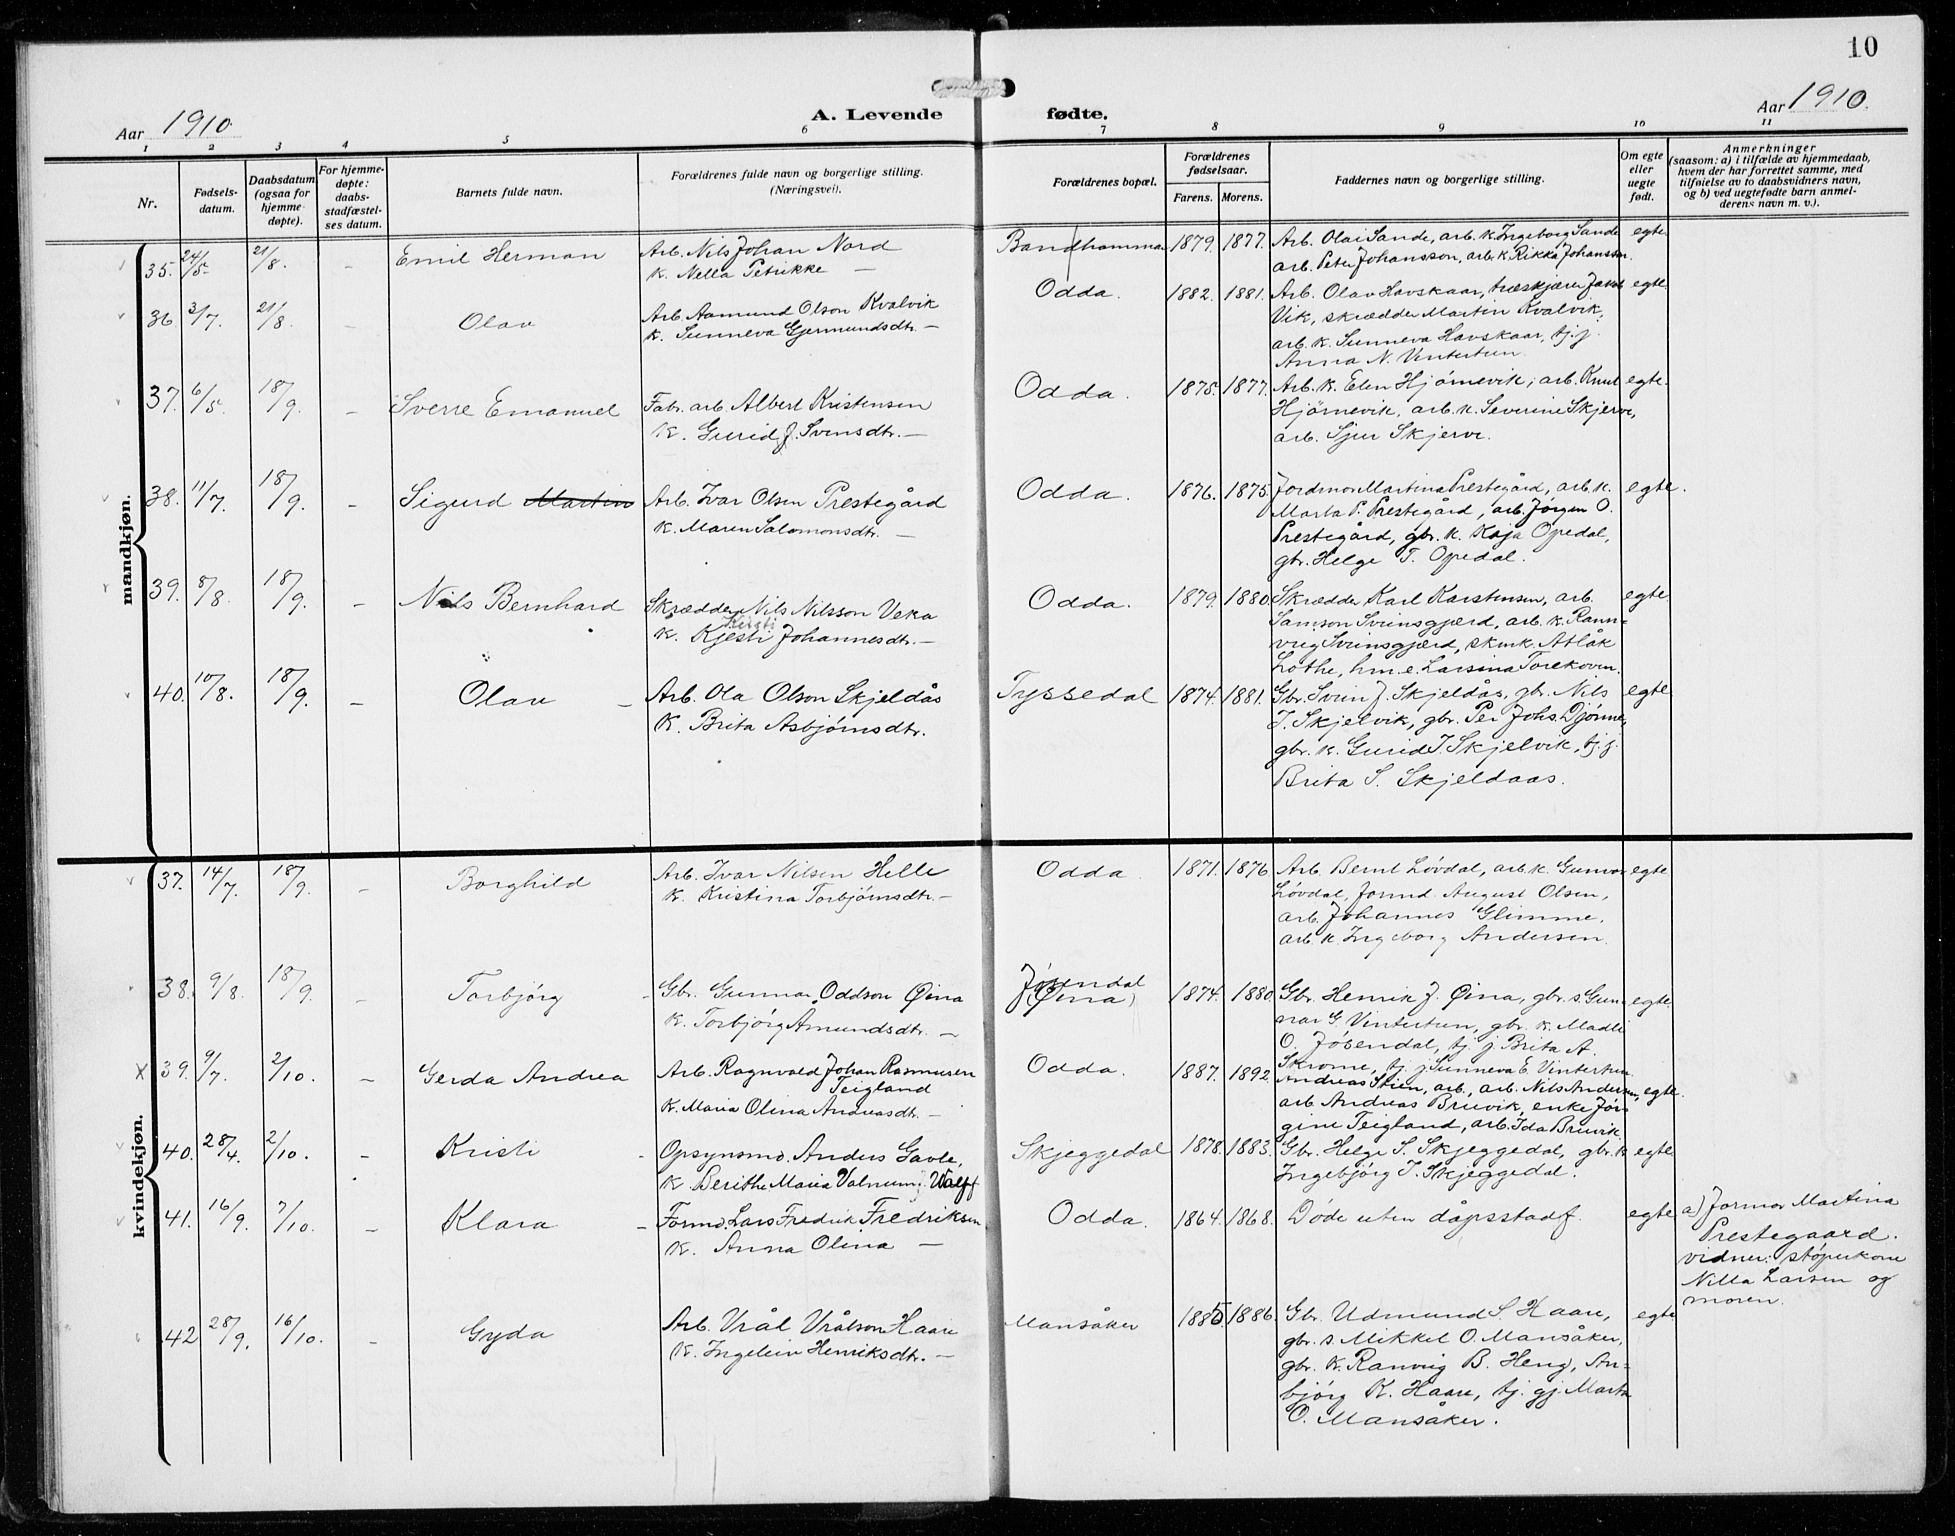 10
Aar 1910.
A. Levende fødte.
Aar 1910.
1 2 3 4 5 6 7 8 9 10 11
Nr.
Fødsels-
datum.
Daabsdatum
(ogsaa for
hjemme-
døpte).
For hjemme-
døpte:
daabs-
stadfæstel-
ses datum.
Barnets fulde navn.
Forældrenes fulde navn og borgerlige stilling.
(Næringsvei).
Forældrenes bopæl.
Forældrenes
fødselsaar.
Farens. Morens.
Faddernes navn og borgerlige stilling.
Om egte
eller
uegte
født.
Anmerkninger
(saasom: a) i tilfælde av hjemmedaab,
hvem der har forrettet samme, med
tilføielse av to daabsvidners navn,
og b) ved uegtefødte barn anmel-
derens navn m. v.).
mandkjøn.
35. 24/5. 21/8. - Emil Herman
Arb. Nils Johan Nord
K. Nella Petrikke —
Bandhammar 1879. 1877.
Arb. Olai Sande, arb. k. Ingeborg Sande
arb. Peter Johansson, arb. k. Rikka Johansson.
egte
36 3/7. 21/8. - Olav
Arb. Aamund Olson Kvalvik
K. Sunneva Gjermundsdtr. —
Odda. 1882. 1881.
Arb. Olav Havskaar, træskjærer Jakob
Vik, skrædder Martin Kvalvik,
arb. k. Sunneva Havskaar, tj. j.
Anna N. Vintertun.
egte
37. 6/5. 18/9. - Sverre Emanuel
Fabr. arb. Albert Kristensen
K. Gurid J. Svensdtr. —
Odda. 1875. 1877.
Arb. k. Elen Hjørnevik, arb. Knut
Hjørnevik, arb. k. Severine Skjerve,
arb. Sjur Skjerve.
egte.
38. 11/7. 18/9. - Sigurd Martin
Arb. Ivar Olsen Prestegård
K. Maren Salomonsdtr. —
Odda. 1876. 1875.
Jordmor Martina Prestegård, arb. k.
Marta P. Prestegård, arb. Jørgen O.
Prestegård, gbr. k. Kaja Opedal,
gbr. Helge T. Opedal.
egte.
39. 8/8. 18/9. - Nils Bernhard
Skrædder Nils Nilsson Veka
Kristi
K. Kjesti Johannesdtr. —
Odda. 1879. 1880
Skrædder Karl Karstensen, arb.
Samson Svinsgjærd, arb. k. Rann-
veig Svinsgjærd, skmk. Atlåk
Lothe, hm. e. Larsina Torekoven.
egte.
40. 10/8. 18/9. - Olav -
Arb. Ola Olson Skjeldås
K. Brita Asbjørnsdtr.
Tyssedal 1874. 1881.
Gbr. Svein J. Skjeldås, gbr. Nils
T. Skjelvik, gbr. Per Johs. Djønne,
gbr. k. Gurid T. Skjelvik, tj. j.
Brita S. Skjeldaas.
egte
kvindekjøn.
37. 14/7. 18/9. - Borghild
Arb. Ivar Nilsen Helle
K. Kristina Torbjørnsdtr. —
Odda. 1871. 1876
Arb. Bernt Løvdal, arb. k. Gunvor
Løvdal, formd. August Olsen,
arb. Johannes Glimme,
arb. k. Ingeborg Andersen.
egte
38. 9/8. 18/9. - Torbjörg -
Gbr. Gunnar Oddson Øina
K. Torbjörg Amundsdtr. —
Jösendal
(Øina) 1874. 1880.
Gbr. Henrik J. Øina, gbr. s. Gun-
nar G. Vintertun, gbr. k. Madli
O. Jösendal, tj. j. Brita A.
Skrome, tj. j. Sunneva E. Vintertun.
egte.
x 39. 9/7. 2/10. - Gerda Andrea
Arb. Ragnvald Johan Rasmusen
Teigland
K. Maria Olina Andreasdtr. —
Odda. 1887. 1892.
Andreas Stien, arb., arb. Nils Andersen,
arb. Andreas Bruvik, enke Jør-
gine Teigland, arb. Ida Bruvik.
egte.
40. 28/4. 2/10. - Kristi -
Opsynsmd. Anders Gavle,
K. Berithe Maria Valnum, Walff
Skjeggedal 1878. 1883.
Gbr. Helge S. Skjeggedal, gbr. k
Ingebjörg J. Skjeggedal.
egte
41. 16/9. 7/10. - Klara -
Formd. Lars Fredrik Fredriksen
K. Anna Olina —
Odda. 1864. 1868.
Døde uten dåpsstadf.
egte
a) Jormor Martina
Prestegaard.
vidner: støperkone
Nilla Larsen og
moren.
42 28/9. 16/10. - Gyda
Arb. Vrål Vrålson Haare
K. Ingelein Henriksdtr. —
Mansåker 1885 1886.
Gbr. Udmund S. Haare,
gbr. s. Mikkel O. Mansåker,
gbr. k. Ranveig B. Heng, An-
björg K. Haare, tj. gj. Marta
O. Mansåker.
egte